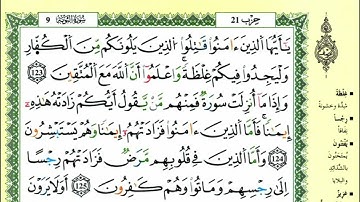 حزب 21
سورة التوبة
9
يَٰٓأَيُّهَا ٱلَّذِينَ ءَامَنُوا۟ قَٰتِلُوا۟ ٱلَّذِينَ يَلُونَكُم مِّنَ ٱلْكُفَّارِ
وَلْيَجِدُوا۟ فِيكُمْ غِلْظَةً ۚ وَٱعْلَمُوٓا۟ أَنَّ ٱللَّهَ مَعَ ٱلْمُتَّقِينَ 123
وَإِذَا مَآ أُنزِلَتْ سُورَةٌ فَمِنْهُم مَّن يَقُولُ أَيُّكُمْ زَادَتْهُ هَٰذِهِۦٓ
إِيمَٰنًا ۚ فَأَمَّا ٱلَّذِينَ ءَامَنُوا۟ فَزَادَتْهُمْ إِيمَٰنًا وَهُمْ يَسْتَبْشِرُونَ
124 وَأَمَّا ٱلَّذِينَ فِى قُلُوبِهِم مَّرَضٌ فَزَادَتْهُمْ رِجْسًا
إِلَىٰ رِجْسِهِمْ وَمَاتُوا۟ وَهُمْ كَٰفِرُونَ 125 أَوَلَا يَرَوْنَ
غلظة
شدة وخشونة
رجسا
يفتنون
يمتحنون
بالشدائد
والبلايا
عزيز